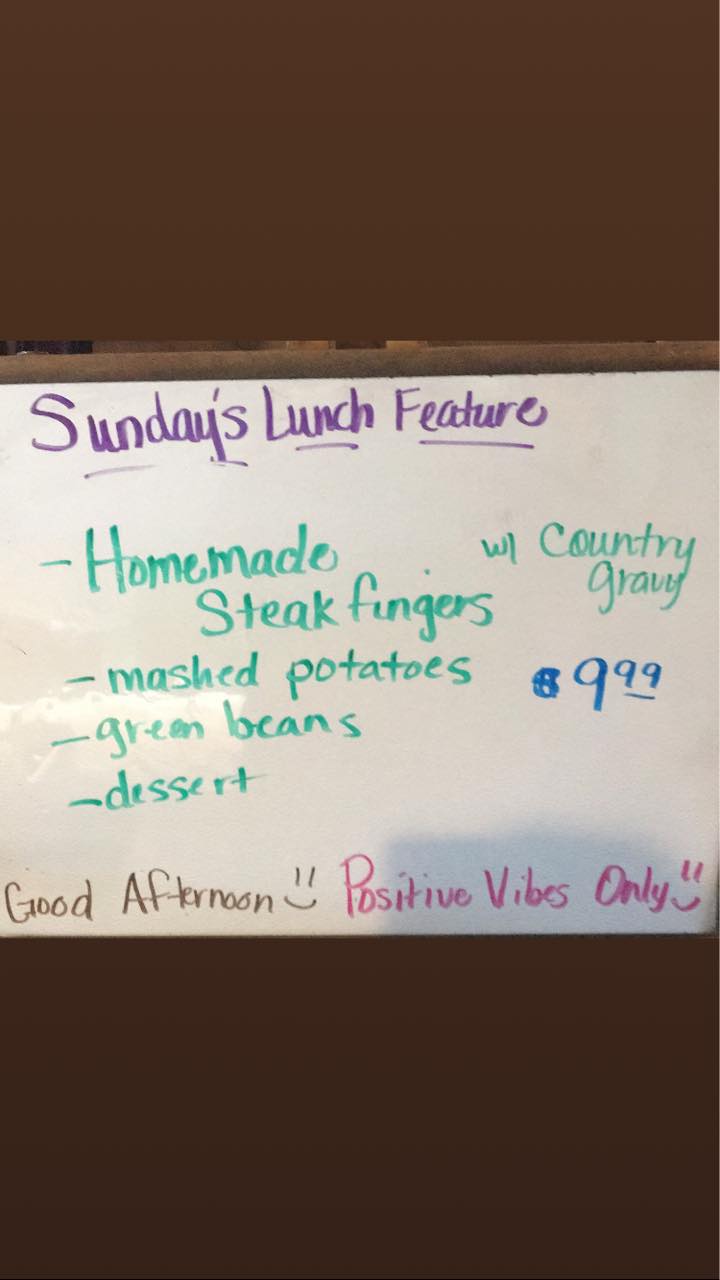 Sunday's Lunch Feature
- Homemade w/ Country
Steak fingers gravy
- mashed potatoes $9.99
- green beans
- dessert
Good Afternoon Positive Vibes Only